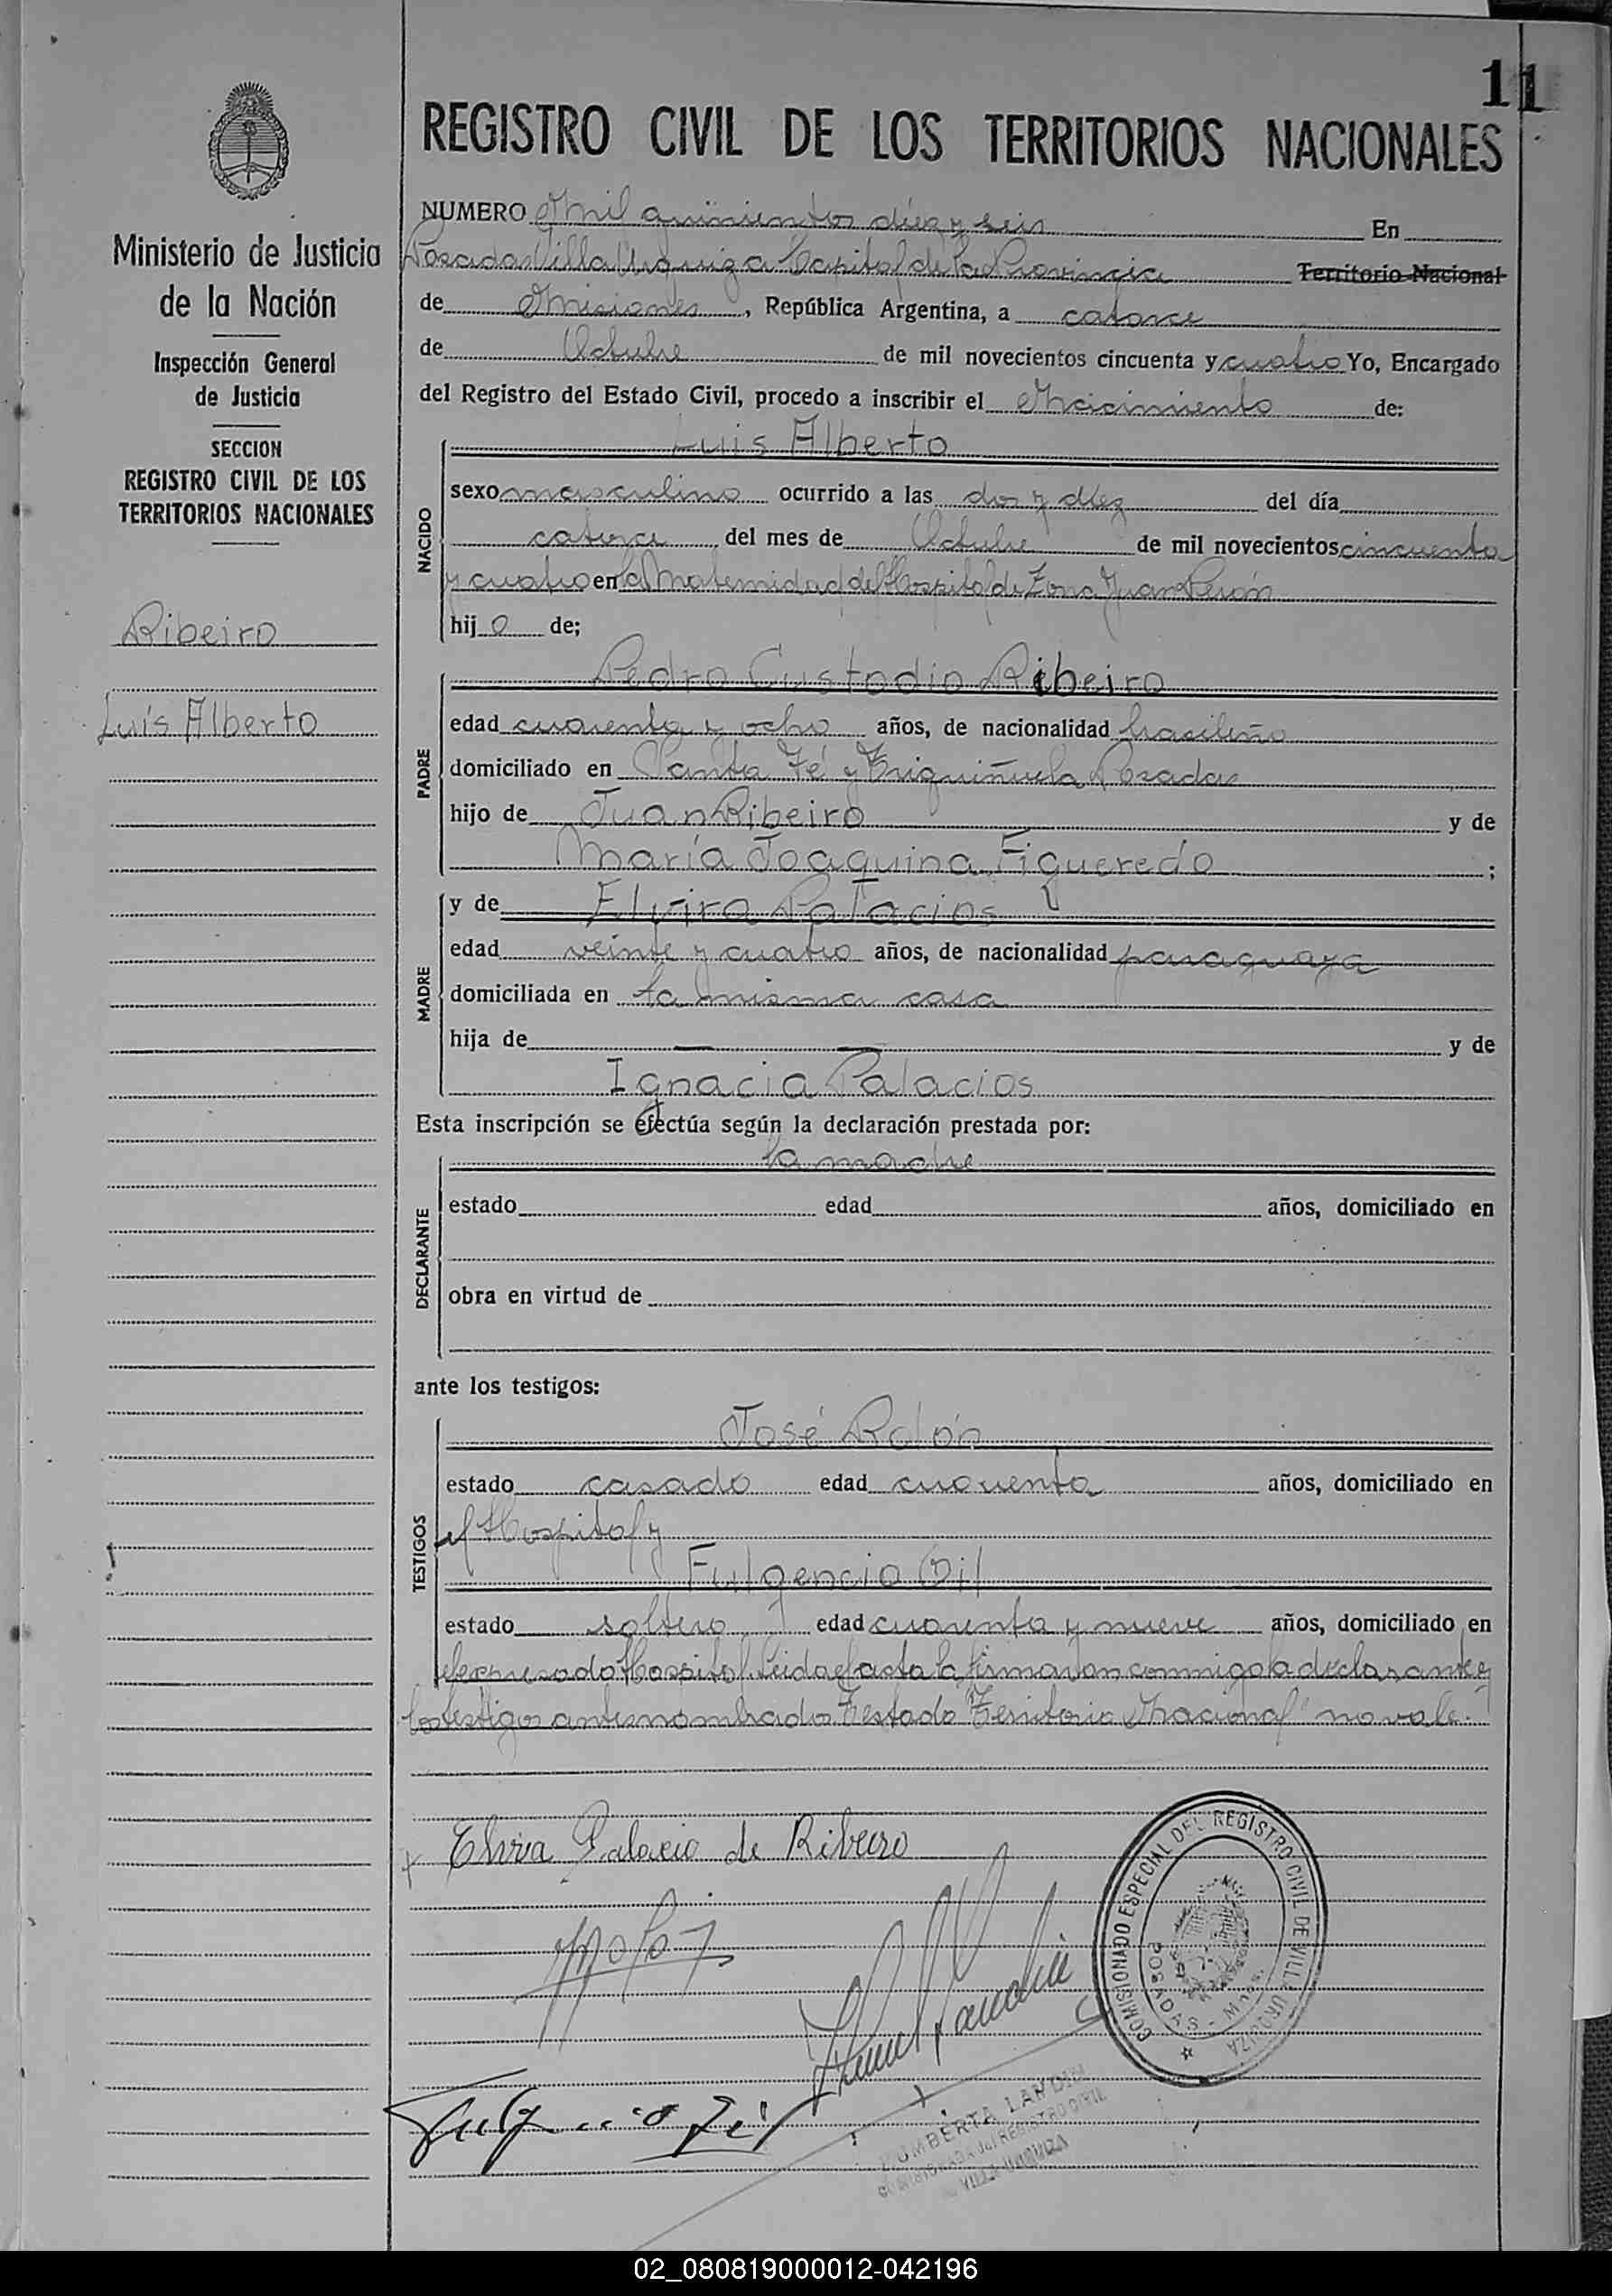 11
REGISTRO CIVIL DE LOS TERRITORIOS NACIONALES
Ministerio de Justicia
de la Nación
Inspección General
de Justicia
SECCION
REGISTRO CIVIL DE LOS
TERRITORIOS NACIONALES
Ribeiro
Luis Alberto
NUMERO Mil quinientos diez y seis En
Posadas Villa Urquiza Capital de la Provincia Territorio Nacional
de Misiones, República Argentina, a catorce
de Octubre de mil novecientos cincuenta y cuatro Yo, Encargado
del Registro del Estado Civil, procedo a inscribir el Nacimiento de:
NACIDO
Luis Alberto
sexo masculino ocurrido a las dos y diez del día
catorce del mes de Octubre de mil novecientos cincuenta
y cuatro en la Maternidad del Hospital de Zona Juan Perón
hijo de;
PADRE
Pedro Custodio Ribeiro
edad cuarenta y ocho años, de nacionalidad brasileño
domiciliado en Santa Fé y Posadas
hijo de Juan Ribeiro y de
María Joaquina Figueredo ;
MADRE
y de Elvira Palacios
edad veinte y cuatro años, de nacionalidad paraguaya
domiciliada en la misma casa
hija de — — y de
Ignacia Palacios
Esta inscripción se efectúa según la declaración prestada por:
DECLARANTE
la madre
estado edad años, domiciliado en
obra en virtud de
ante los testigos:
TESTIGOS
José Rolón
estado casado edad cuarenta años, domiciliado en
el Hospital y
Fulgencio Gil
estado soltero edad cuarenta y nueve años, domiciliado en
el expresado Hospital. Leida el acta la firmaron conmigo la declarante y
los testigos antes nombrados Testado "Territorio Nacional" no vale.
Elvira Palacio de Ribeiro
Fulgencio Gil
COMISIONADO ESPECIAL DEL REGISTRO CIVIL DE VILLA URQUIZA
POSADAS - Mnes.
HUMBERTA LANDINI
COMISIONADA del REGISTRO CIVIL
VILLA URQUIZA
02_080819000012-042196